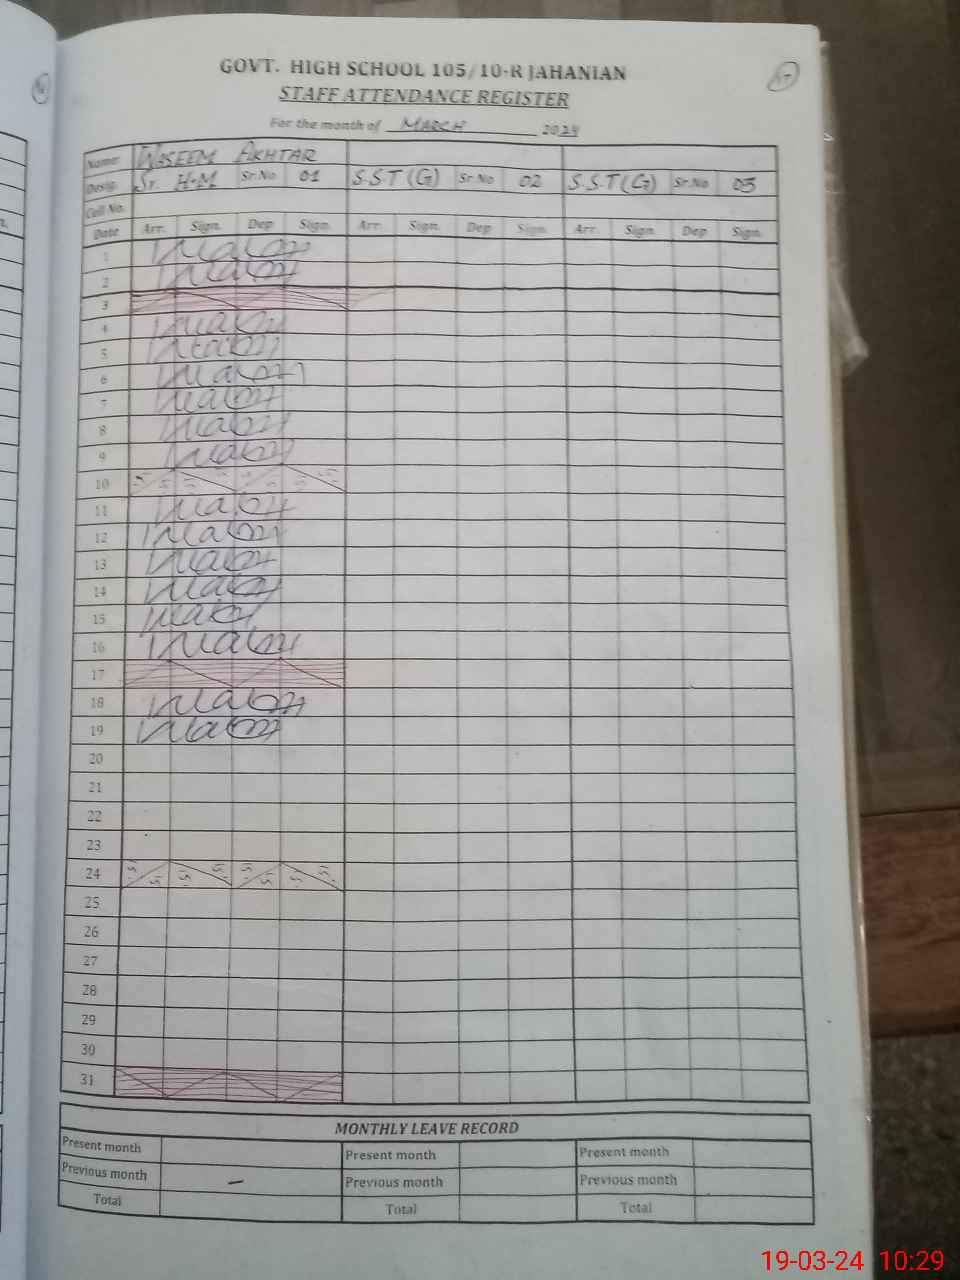 GOVT. HIGH SCHOOL 105/10-R JAHANIAN
17
STAFF ATTENDANCE REGISTER
For the month of MARCH 2024
Name WASEEM AKHTAR
Desig. Sr. H-M Sr.No 01 S.S.T(G) Sr No 02 S.S.T(G) Sr.No 03
Cell No.
Date Arr. Sign. Dep Sign. Arr. Sign. Dep Sign. Arr. Sign. Dep Sign.
1
2
3
4
5
6
7
8
9
10
11
12
13
14
15
16
17
18
19
20
21
22
23
24
25
26
27
28
29
30
31
MONTHLY LEAVE RECORD
Present month Present month Present month
Previous month – Previous month Previous month
Total Total Total
19-03-24 10:29